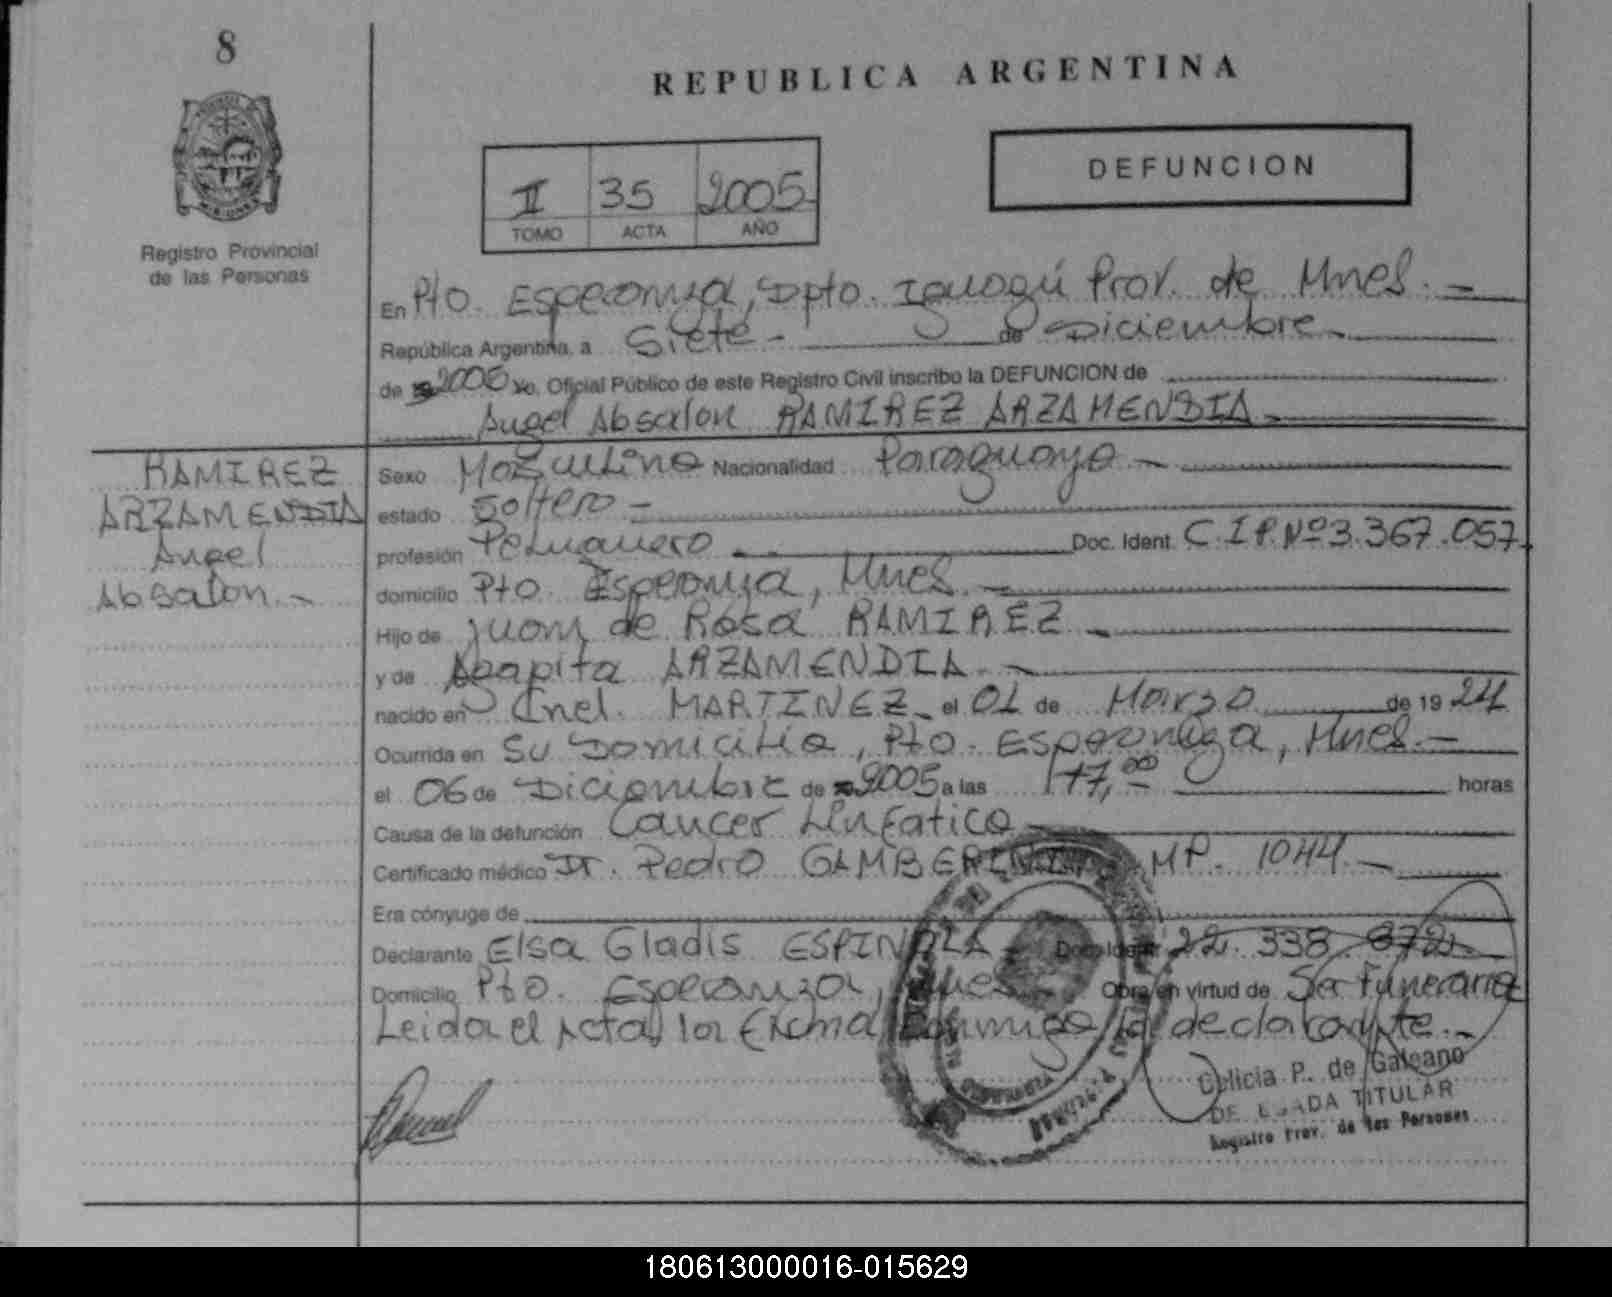 8
REPUBLICA ARGENTINA
DEFUNCION
II 35 2005
TOMO ACTA AÑO
Registro Provincial
de las Personas
En Pto. Esperanza, Dpto. Iguazú Prov. de Mnes. -
República Argentina, a Siete - de Diciembre -
de 2005 Yo, Oficial Público de este Registro Civil inscribo la DEFUNCION de
Angel Absalon RAMIREZ ARZAMENDIA -
RAMIREZ
ARZAMENDIA
Angel
Absalon. -
Sexo Masculino Nacionalidad Paraguaya -
estado Soltero -
profesión Doc. Ident. C.I.P. Nº 3.367.057
domicilio Pto. Esperanza, Mnes. -
Hijo de Juan de Rosa RAMIREZ -
y de Agapita ARZAMENDIA. -
nacido en Cnel. MARTINEZ - el 01 de Marzo de 1924
Ocurrida en Su Domicilio, Pto. Esperanza, Mnes. -
el 06 de Diciembre de 2005 a las 17,00 horas
Causa de la defunción Cancer Linfatico -
Certificado médico Dr. Pedro GAMBERINI MP. 1044. -
Era cónyuge de
Declarante Elsa Gladis ESPINOZA - Doc. Ident. 22.338.872 -
Domicilio Pto. Esperanza, Mnes. - Obra en virtud de Ser Funeraria
Leida el Acta, la firma conmigo la declarante. -
Delicia P. de Galeano
DELEGADA TITULAR
Registro Prov. de las Personas
180613000016-015629